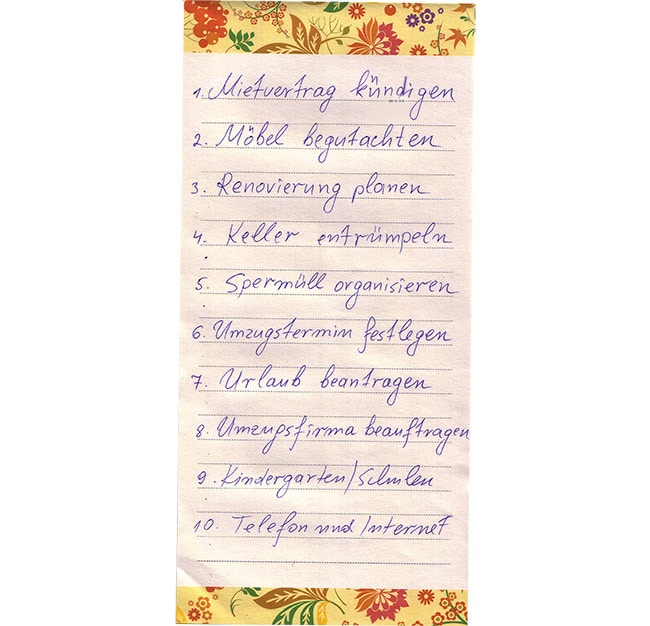 1. Mietvertrag kündigen
2. Möbel begutachten
3. Renovierung planen
4. Keller entrümpeln
5. Spermüll organisieren
6. Umzugstermin festlegen
7. Urlaub beantragen
8. Umzugsfirma beauftragen
9. Kindergarten/Schulen
10. Telefon und Internet